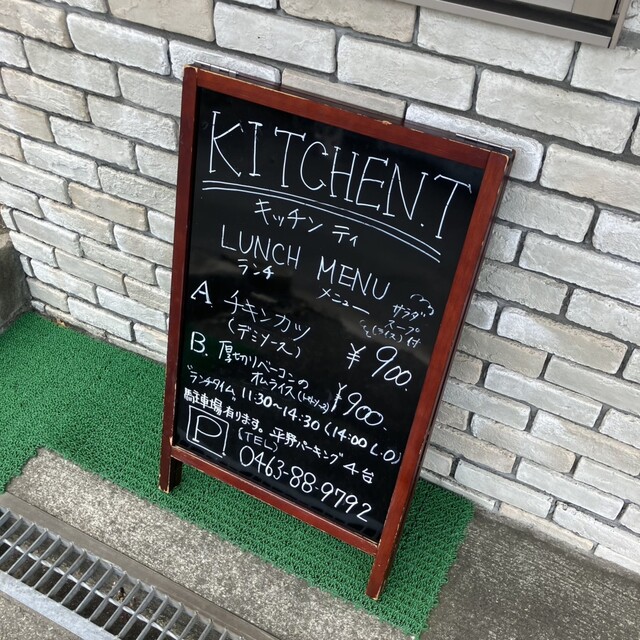 KITCHEN.T
キッチン ティ
LUNCH MENU
ランチ メニュー
サラダ
スープ
ライス 付
A チキンカツ
(デミソース) ¥900.
B. 厚切りベーコンの
オムライス ¥900.
"ランチタイム" 11:30~14:30 (14:00 L.O)
駐車場有ります。平野パーキング 4台
P (TEL)
0463-88-9792